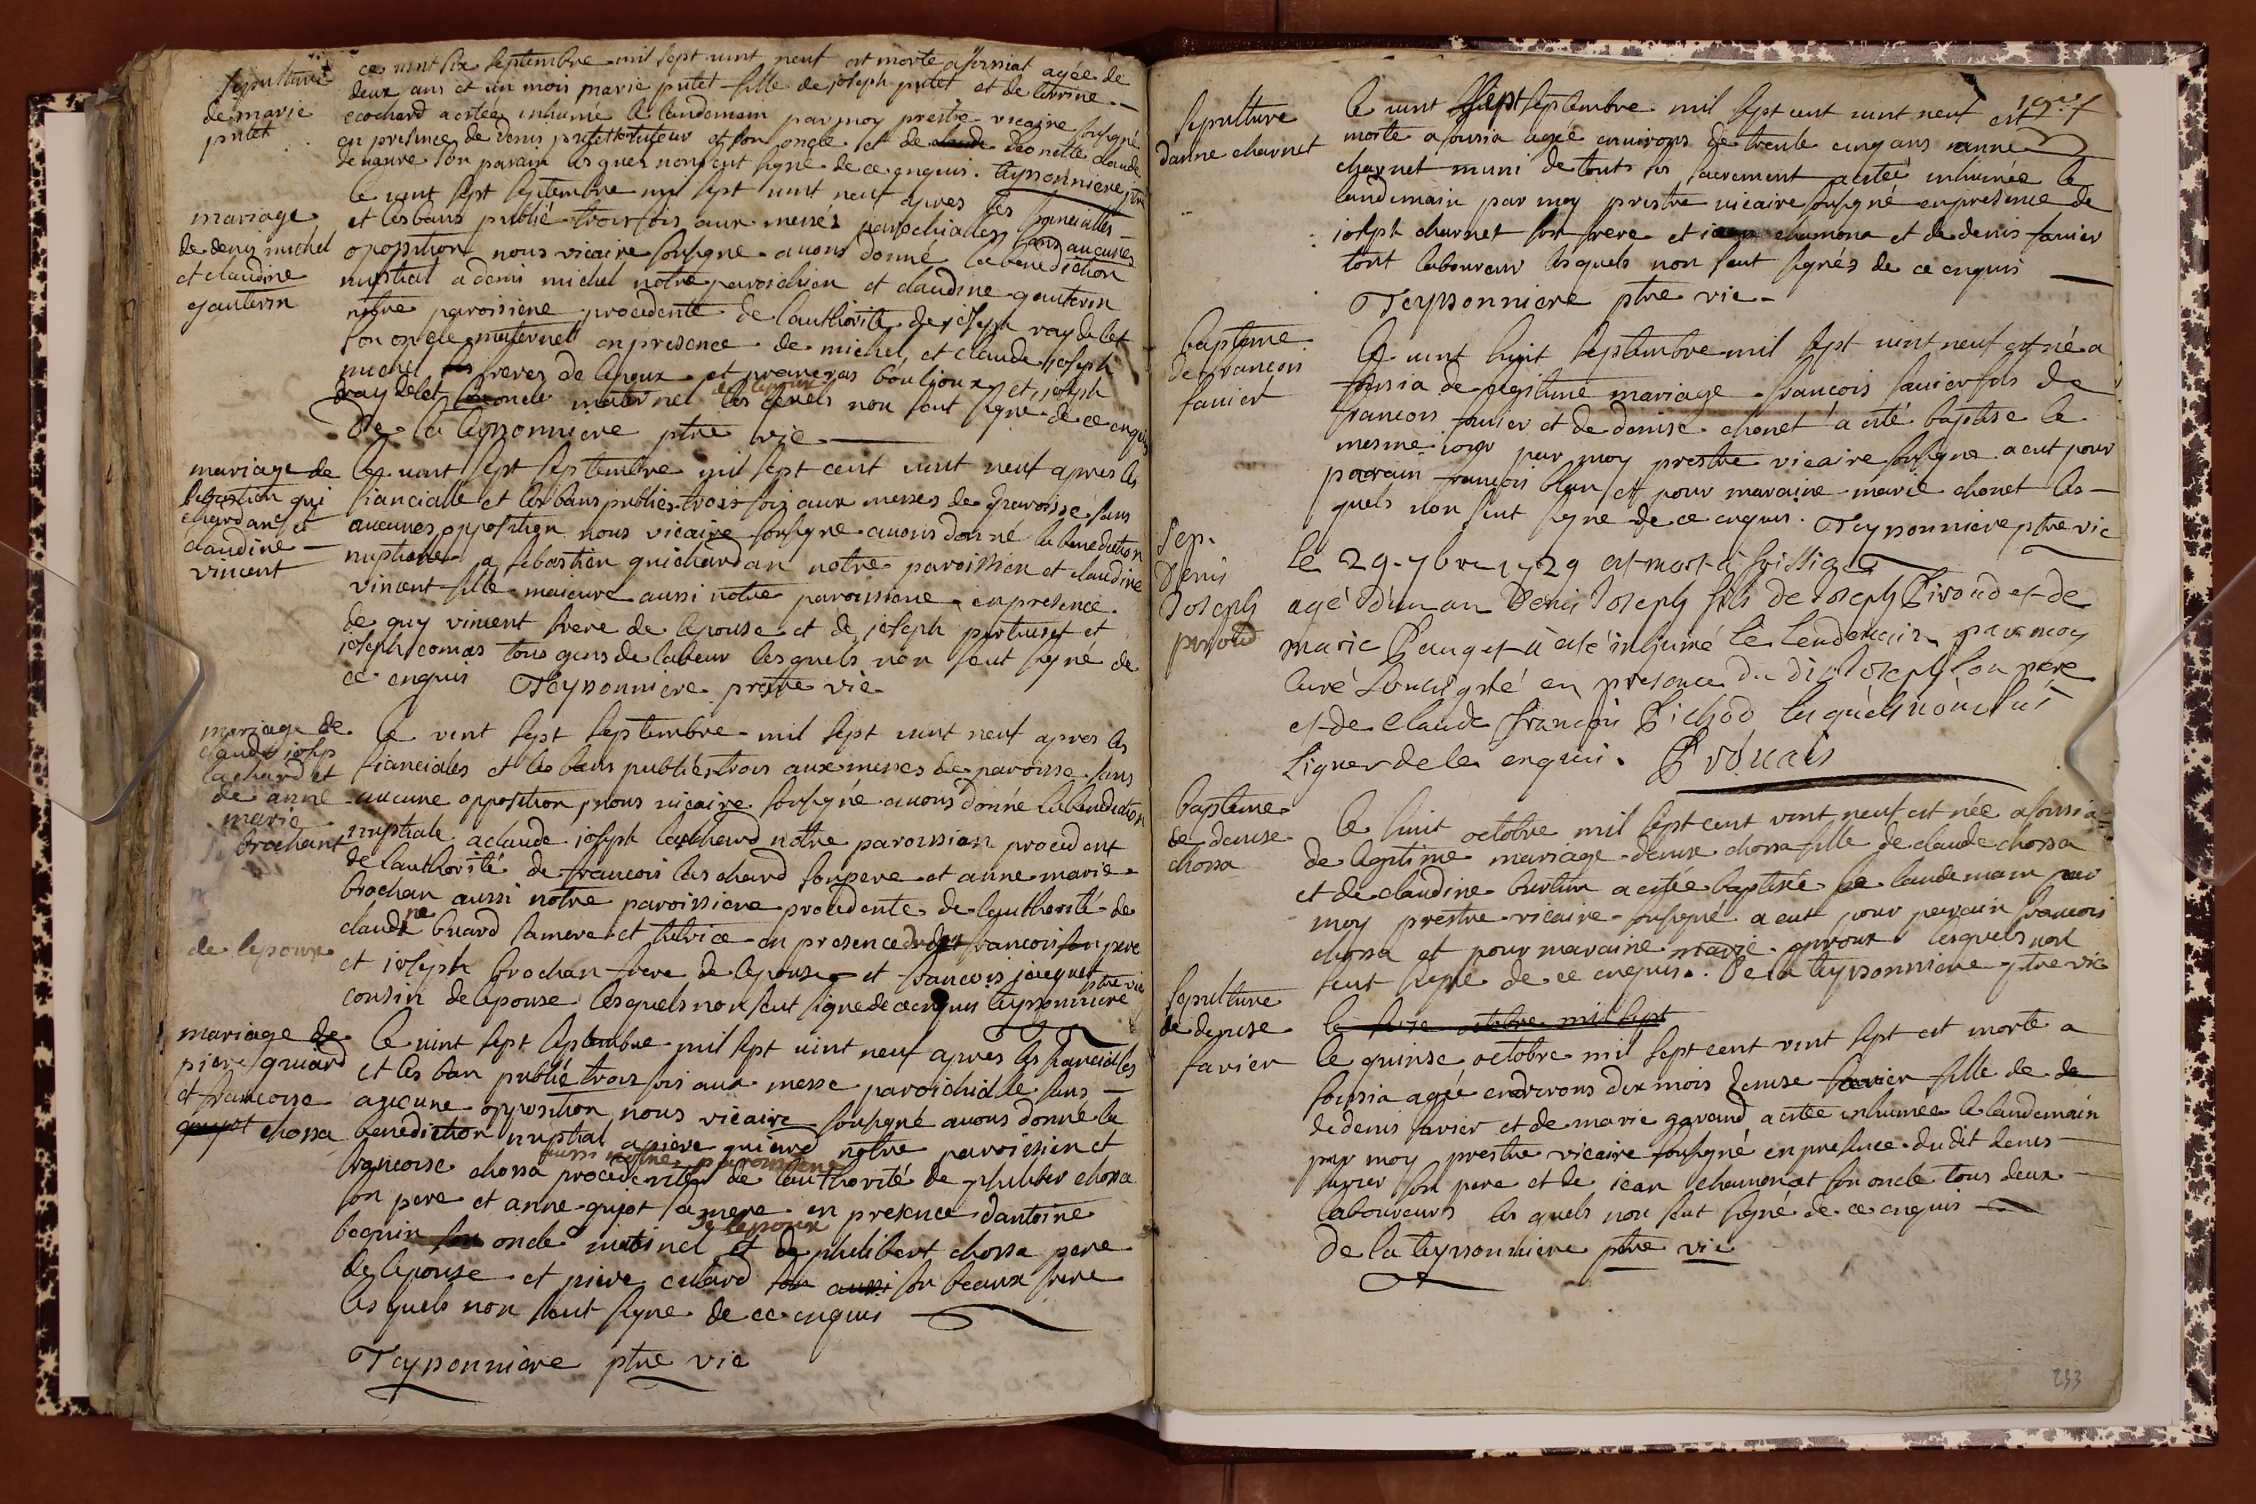 sepulture
de marie
putet
ce vint six septembre mil sept vint neuf est morte a forniat agée de
deux ans et un mois marie putet fille de joseph putet et de
ecochard a estée inhumé le landemain par moy prestre vicaire sousigné
en presence de denis putet tuteur et son oncle et de claude
son parain les quels nont seut signé de ce enquis. teyssonniere ptre
mariage
de denis michel
et claudine
gauterin
le vint sept septembre mil sept vint neuf apres les fianciailles
et les bans publié trois fois aux messes parochialles sans aucunes
opossition nous vicaire sousigne avons donné la benediction
nuptial a denis michel notre paroisien et claudine gauterin
notre paroisiene procedente de lauthorité de joseph ray delet
son oncle maternel en presence de michel et claude joseph
michel ses freres de lepoux et francois boulioux et joseph
ray delet son oncle maternel de lepouse les quels non seut signe de ce enquis
De la teyssonniere ptre vic
mariage de
sebastien gui
chardan et
claudine
vincent
le vint sept septembre mil sept cent vint neuf apres les
fiancialle et les bans publies trois fois aux messes de paroisse sans
aucunes opposition nous vicaire sousigne avons donné la benediction
nuptiale a sebastien guichardan notre paroissien et claudine
vincent fille maieure aussi notre paroissiene en presence
de guy vincent frere de lepouse et de joseph pertuiset et
joseph comas tous gens de labeur lesquels non seut signé de
ce enquis Teyssonniere prestre vic
mariage de
claude josep
lachard et
de anne
marie
brochant
le vint sept septembre mil sept vint neuf apres les
fianciales et les bans publies trois aux messes de paroisse sans
aucune opposition nous vicaire sousigné avons donné la benediction
nuptiale a claude joseph lachard notre paroissian procedent
de lauthorité de francois lachard son pere et anne marie
brochan aussi notre paroissiene procedente de lauthorité de
claudine buard sa mere et tutrice en presence dudit francois son pere
de lepoux
et joseph brochan frere de lepouse et francois jacquet
cousin de lepouse lesquels non seut signe de ce enquis teyssonniere ptre vic
mariage de
piere guiard
et francoise
guyot chossa
le vint sept septembre mil sept vint neuf apres les fiancialles
et les ban publié trois fois aux messe parochialle sans
aucune opposition nous vicaire sousigné avons donné la
benediction nuptial a piere guiard notre paroissien et
francoise chossa aussi notre paroissiene procedente de lauthorité de philiber chossa
son pere et anne guyot sa mere en presence dantoine
bequin son oncle maternel de lepoux et de philibert chossa pere
de lepouse et piere celard son aussi son beaux frere
les quels non seut signe de ce enquis
Teyssonniere ptre vic
sepulture
danne charnet
le vint sept septembre mil sept cent vint neuf est
morte a foisia agée environs de trente cinq ans anne
charnet muni de touts ses sacrement a estée inhumée le
landemain par moy prestre vicaire sousigné en presence de
joseph charnet son frere et jean chamona et de denis favier
tout laboureur lesquels non seut signés de ce enquis
Teyssonniere ptre vic
bapteme
de francois
favier
le vint huit septembre mil sept vint neuf est né a
foisia de legitime mariage francois favier fils de
francois favier et de denise chonet a esté baptise le
mesme jour par moy prestre vicaire sousigne a eut pour
parain francois blan et pour maraine marie chonet les
quels non seut signe de ce enquis. Teyssonniere ptre vic
Sep.
Denis
Joseph
piroud
le 29 7bre 1729 est mort à foissiat
agé d'un an Denis Joseph fils de Joseph Piroud et de
marie Pauget à été inhumé le lendemain par moy
curé soussigné en presence du dit Joseph son pere
et de Claude françois Pichod lesquels nont sû
signer de ce enquis. Provenis
bapteme
de denise
chossa
le huit octobre mil sept cent vint neuf est née a foisia
de legitime mariage denise chossa fille de claude chossa
et de claudine burtin a estée baptisée le landemain par
moy prestre vicaire sousigné a eut pour parain francois
chossa et pour maraine marie lesquels non
seut signe de ce enquis. De la teyssonniere ptre vic
sepulture
de denise
favier
le seise octobre mil sept
le quinse octobre mil sept cent vint sept est morte a
foisia agée environs dix mois denise favier fille de de
de denis favier et de marie gavand a estée inhumée le landemain
par moy prestre vicaire sousigné en presence du dit denis
favier son pere et de jean chamonat son oncle tous deux
laboureurs les quels non seut signé de ce enquis
De la teyssonniere ptre vic
233